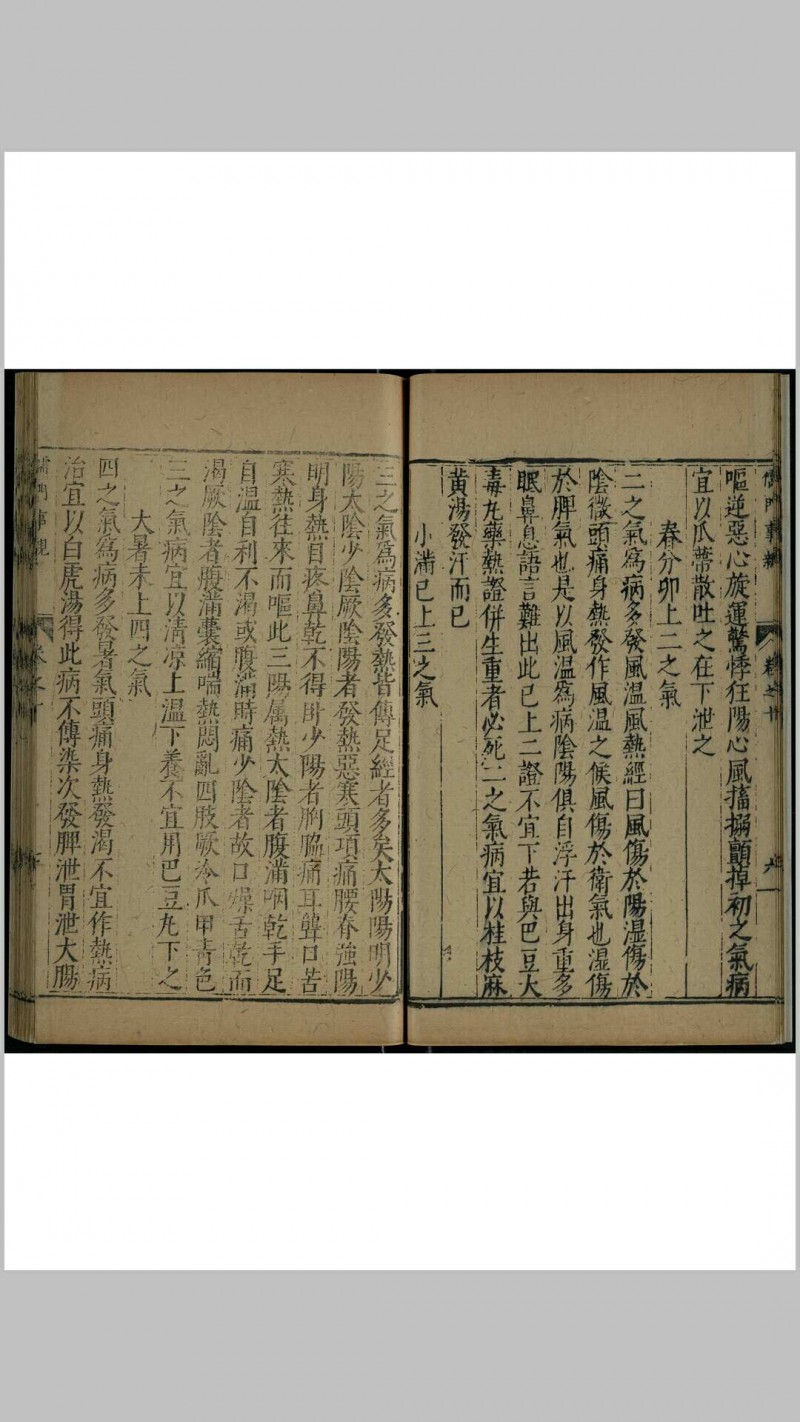 嘔逆惡心旋運驚悸狂陽心風搐搦顫掉初之氣病
宜以瓜蒂散吐之在下泄之
春分卯上二之氣
二之氣為病多發風温風熱經曰風傷於陽湿傷於
陰微頭痛身熱發作風温之候風傷於衛氣也湿傷
於脾氣也是以風温為病陰陽俱自浮汗出身重多
眠鼻息語言難出此已上二證不宜下若與巴豆大
毒丸藥熱證併生重者必死二之氣病宜以桂枝麻
黃湯發汗而已
小滿巳上三之氣
三之氣為病多發熱皆傳足經者多矣太陽陽明少
陽太陰少陰厥陰太陽者發熱惡寒頭項痛腰脊強陽
明身熱目疼鼻乾不得卧少陽者胸脇痛耳聾口苦
寒熱往來而嘔此三陽属熱太陰者腹滿咽乾手足
自温自利不渴或腹滿時痛少陰者故口燥舌乾而
渴厥陰者腹滿囊縮喘熱悶亂四肢厥冷爪甲青色
三之氣病宜以清凉上温下養不宜用巴豆丸下之
大暑未上四之氣
四之氣為病多發暑氣頭痛身熱發渴不宜作熱病
治宜以白虎湯得此病不傳染次發脾泄胃泄大腸
儒門事親